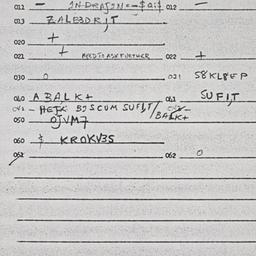 011 – IN-DRAJIN=-$a:$ 012 –
013 ZALEBDRIT
020 +
021 + NEED TO ASK FURTHER 022 +
030 0 031 58KL8FP
040 ABALK+ 041 SUFI,T
- HEJK BJSCUM SUFI,T/BALK+
050 OJVM7
060 $ KROKV35
061 062 0